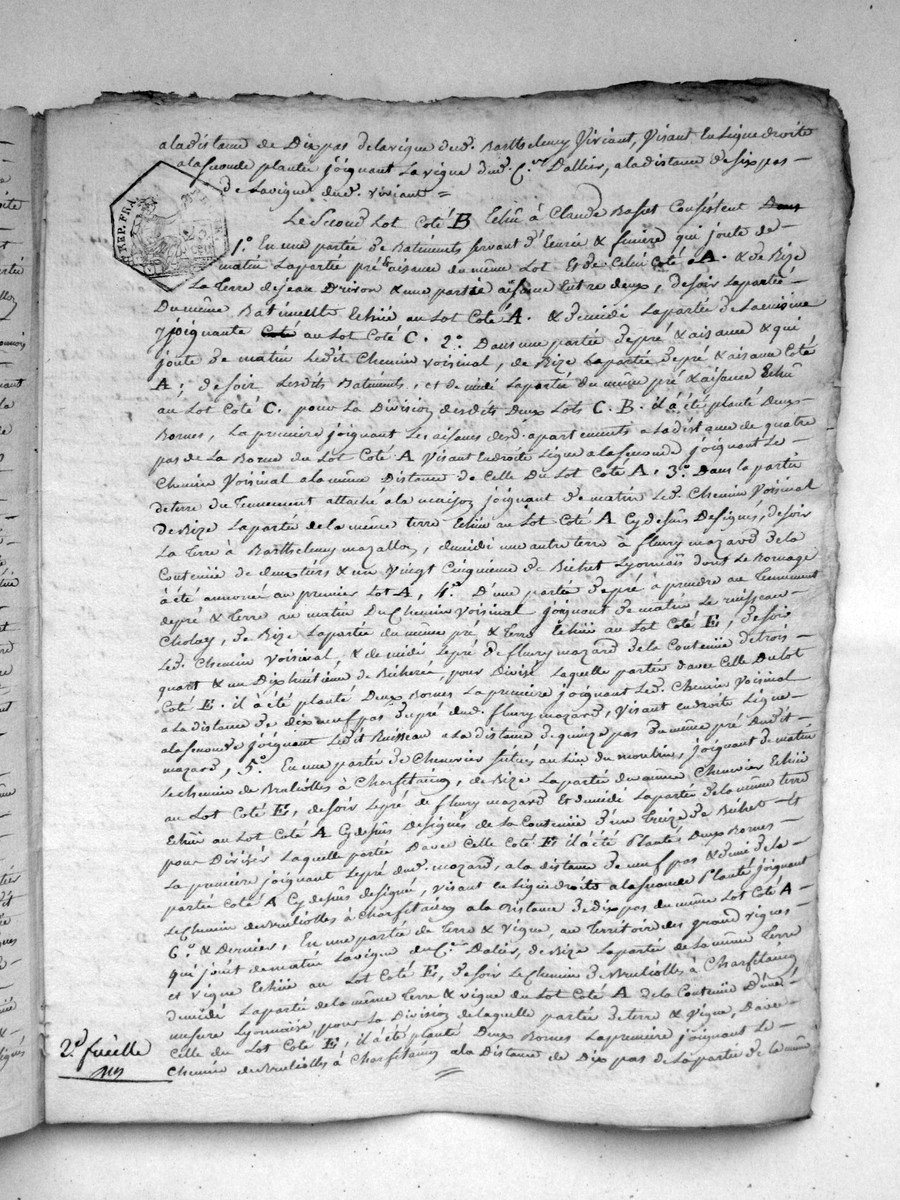 a la distance de Dix pas de la vigne dud. Barthelemy Viviant, Visant en Ligne droite
a la seconde plantée joignant la vigne dud. C.en Dallier, a la distance de six pas
de la vigne dud. viviant =
REP. FRA.
Le Second Lot Coté B Echû à Claude Basset Consistent Dans
1.º En une partie de Batiments servant d'Ecurie & feniere qui joute de
matin La partie pré & aisance du même Lot et de Celui Coté A. & de Bize
La Terre de Jean Drivon & une partie aisance Entre deux, de soir La partie
Du même Batiment Echüe au Lot Coté A. & de midi La partie de La
y joignante au Lot Coté C. 2.º Dans une partie de pré & aisance & qui
joute de matin Ledit Chemin voisinal, de Bize La partie de pré & aisance Coté
A; de soir Lesdits Batiments, et de midi La partie du même pré & aisance Echû
au Lot Coté C. pour La Division desdits Deux Lots C. B. il a été planté Deux
Bornes, La premiere joignant Les aisances desd. apartements a la distance de quatre
pas de La Borne du Lot Coté A Visant en droite Ligne a la seconde joignant Le
Chemin Voisinal a la même Distance de Celle Du Lot Coté A. 3.º Dans la partie
de terre du Tennement attaché a la maison joignant de matin Led. Chemin Voisinal
de Bize La partie de la même terre Echüe au Lot Coté A Cy dessus Designé, de soir
La Terre à Barthelemy mazallon, de midi une autre terre à fleury mazard de la
Contenüe de deux tiers & un Vingt Cinquieme de Bichet Lyonnois dont Le Bornage
à été annoncé au premier Lot A, 4.º D'une partie de pré à prendre au Tennement
de pré & Terre au matin Du Chemin Voisinal joignant de matin Le ruisseau
Cholay, de Bize La partie du même pré & Terre Echüe au Lot Coté E, de soir
Led. Chemin Voisinal, & de midi Le pré de fleury mazard de la Contenüe de trois
quart & un Dix huitième de Bicherée, pour Divisé Laquelle partie d'avec Celle Du Lot
Coté E. il à été planté Deux Bornes La premiere joignant Led. Chemin Voisinal
a la distance de dix neuf pas du pré dud. fleury mazard, Visant en droite Ligne
a la seconde joignant Ledit Ruisseau a la distance de quinze pas du même pré Dudit
mazard, 5.º En une partie de Chenevier située au Lieu du moulin, joignant de matin
Le chemin de Brulliolles à Charfetain, de Bize La partie du même Chenevier Echüe
au Lot Coté E, de soir Le pré de fleury mazard Et de midi La partie de la même terre
Echüe au Lot Coté A Cy dessus Designés de la Contenüe d'un Treize de Bichet Et
pour Divisér Laquelle partie D'avec Celle Coté E il à été Planté Deux Bornes
La premiere joignant Le pré dud. mazard, a la distance de neuf pas & demi de la
partie Coté A Cy dessus designé, visant en Ligne droite a la seconde Planté joignant
Le Chemin de Brulliolles à Charfetain a la Distance de dix pas du même Lot Coté A
6.º & Dernier, En une partie de Terre & vigne, au Territoire des grand vignes
qui joint de matin La vigne du C.en Dalier, de Bize La partie de La même Terre
et vigne Echüe au Lot Coté E, de soir Le Chemin de Brulliolles à Charfetain
de midi La partie de la même Terre & vigne du Lot Coté A de la Contenüe D'une
mesure Lyonnoise, pour la Division de laquelle partie de terre & Vigne, D'avec
Celle du Lot Coté E, il à été planté Deux Bornes La premiere joignant Le
Chemin de Brulliolles à Charfetain a la Distance de Dix pas de La partie de la même
2.e